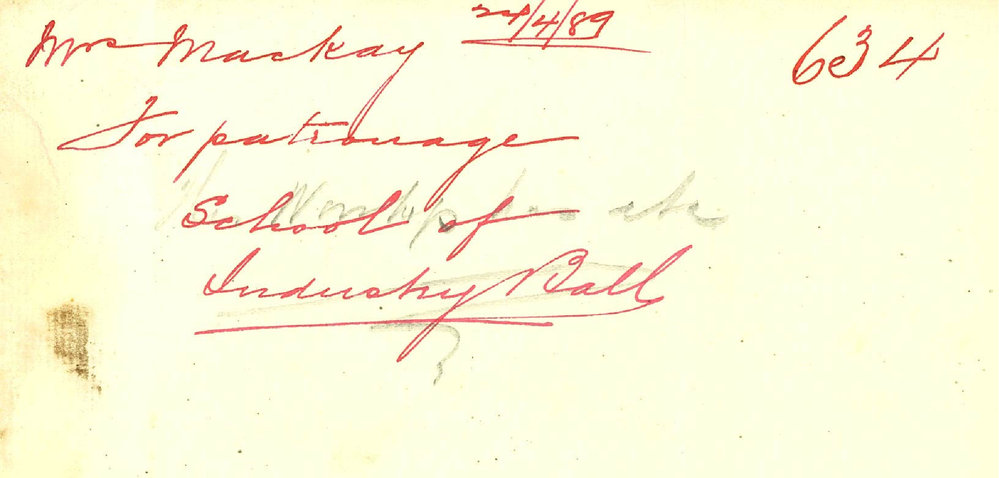 Mrs Mackay 24/4/89 634
For patronage
School of
Industry Ball